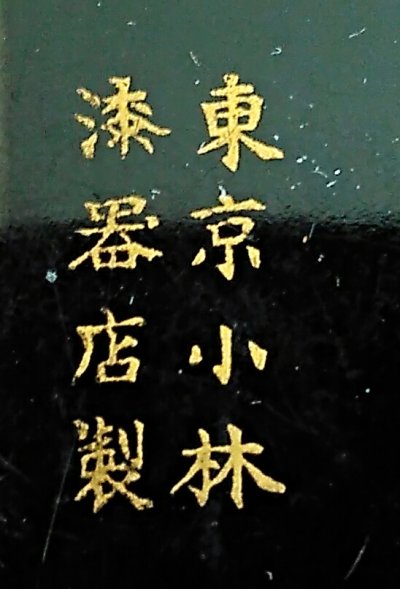 東京小林
漆器店製